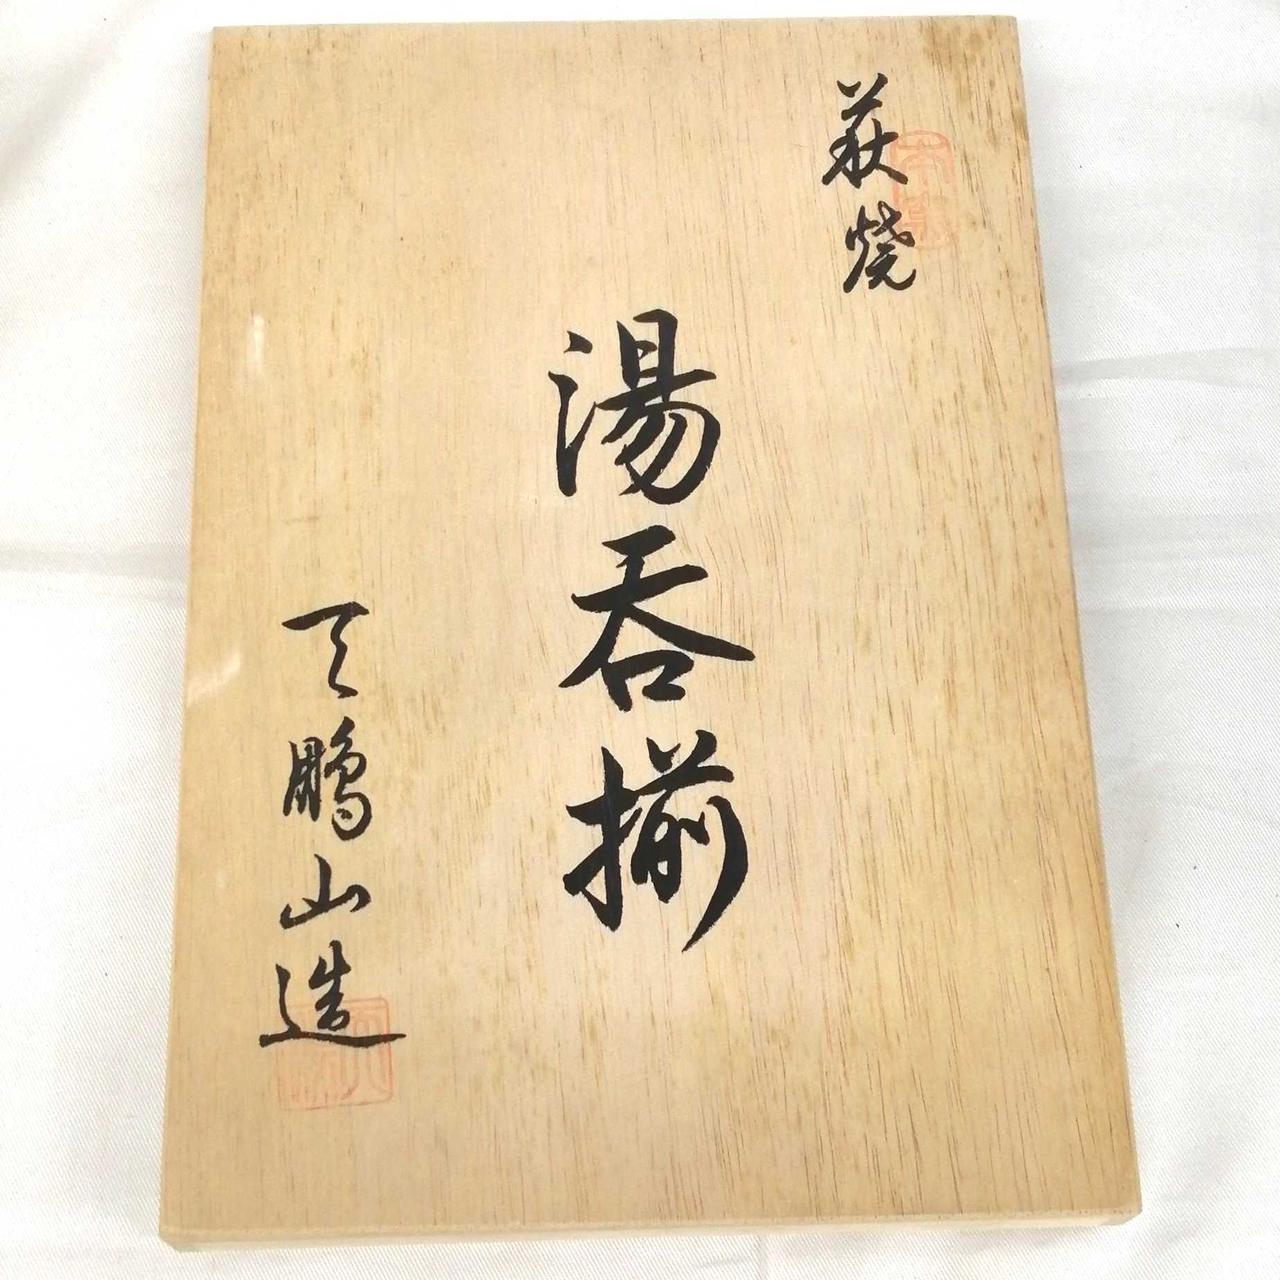 萩焼
湯呑揃
天鵬山造